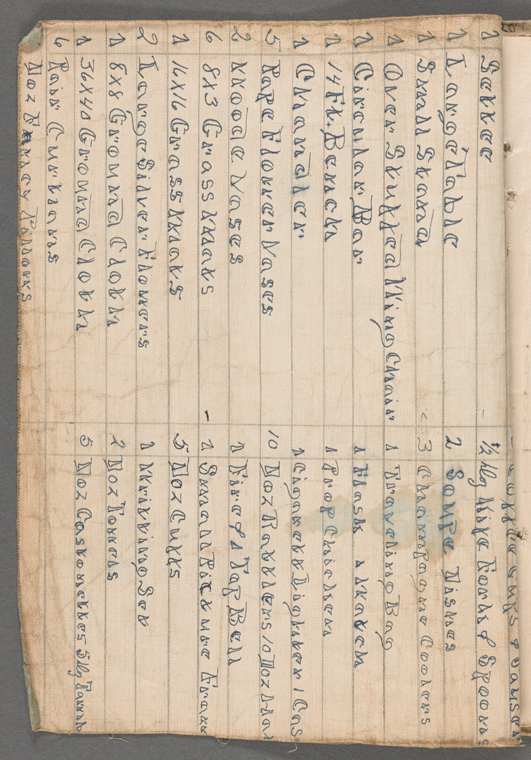 Coffee Cups & Saucer
1 Settee
1 Large Table
1 Small Stand
1 Over Stuffed Wing Chair
1 Circular Bar
1 14 Ft. Bench
1 Chandaler
5 Pape Flower Vases
2 Wood Vases
6 8x3 Grass Matts
1 16x16 Grass Matts
2 Large Silver Flowers
1 8x8 Ground Cloth
1 36x40 Ground Cloth
6 Pair Curtians
Doz Fancy Pillows
1/2 Dz Knife Forks & Spoons
2 Soupe Dishes
3 Champagne Coolers
1 Traveling Bag
1 Flask 1 Watch
1 Prop Chicken
1 Cigarett Lighter 1 Cas
10 Doz Rattlers 10 Doz
1 Fire & 1 Tap Bell
1 Small Picture Fram
5 Doz Cuffs
1 Writting Set
2 Doz Towels
5 Doz Castonettes 5 Dz